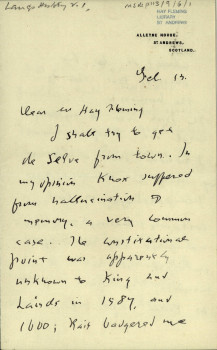 Lang's History V. 1.
HAY FLEMING
LIBRARY
ST ANDREWS
ALLEYNE HOUSE,
ST. ANDREWS,
SCOTLAND.
Feb 14.
Dear Mr Hay Fleming
I shall try to get
de Selve from town. In
my opinion Knox suffered
from hallucination of
memory, a very common
case. The constitutional
point was apparently
unknown to King and
Lairds in 1587, and
1600;
badgered me